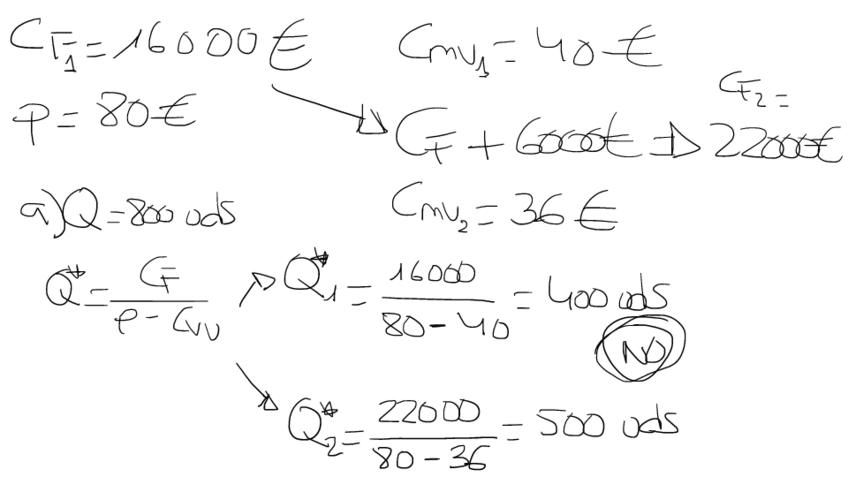 CF₁ = 16000€
Cmv₁ = 40€
p = 80€
CF + 6000€ ⇒ CF₂ = 22000€
a) Q = 800 uds
Cmv₂ = 36€
Q* = CF / (P - Cvu)
Q*₁ = 16000 / (80 - 40) = 400 uds
NO
Q*₂ = 22000 / (80 - 36) = 500 uds